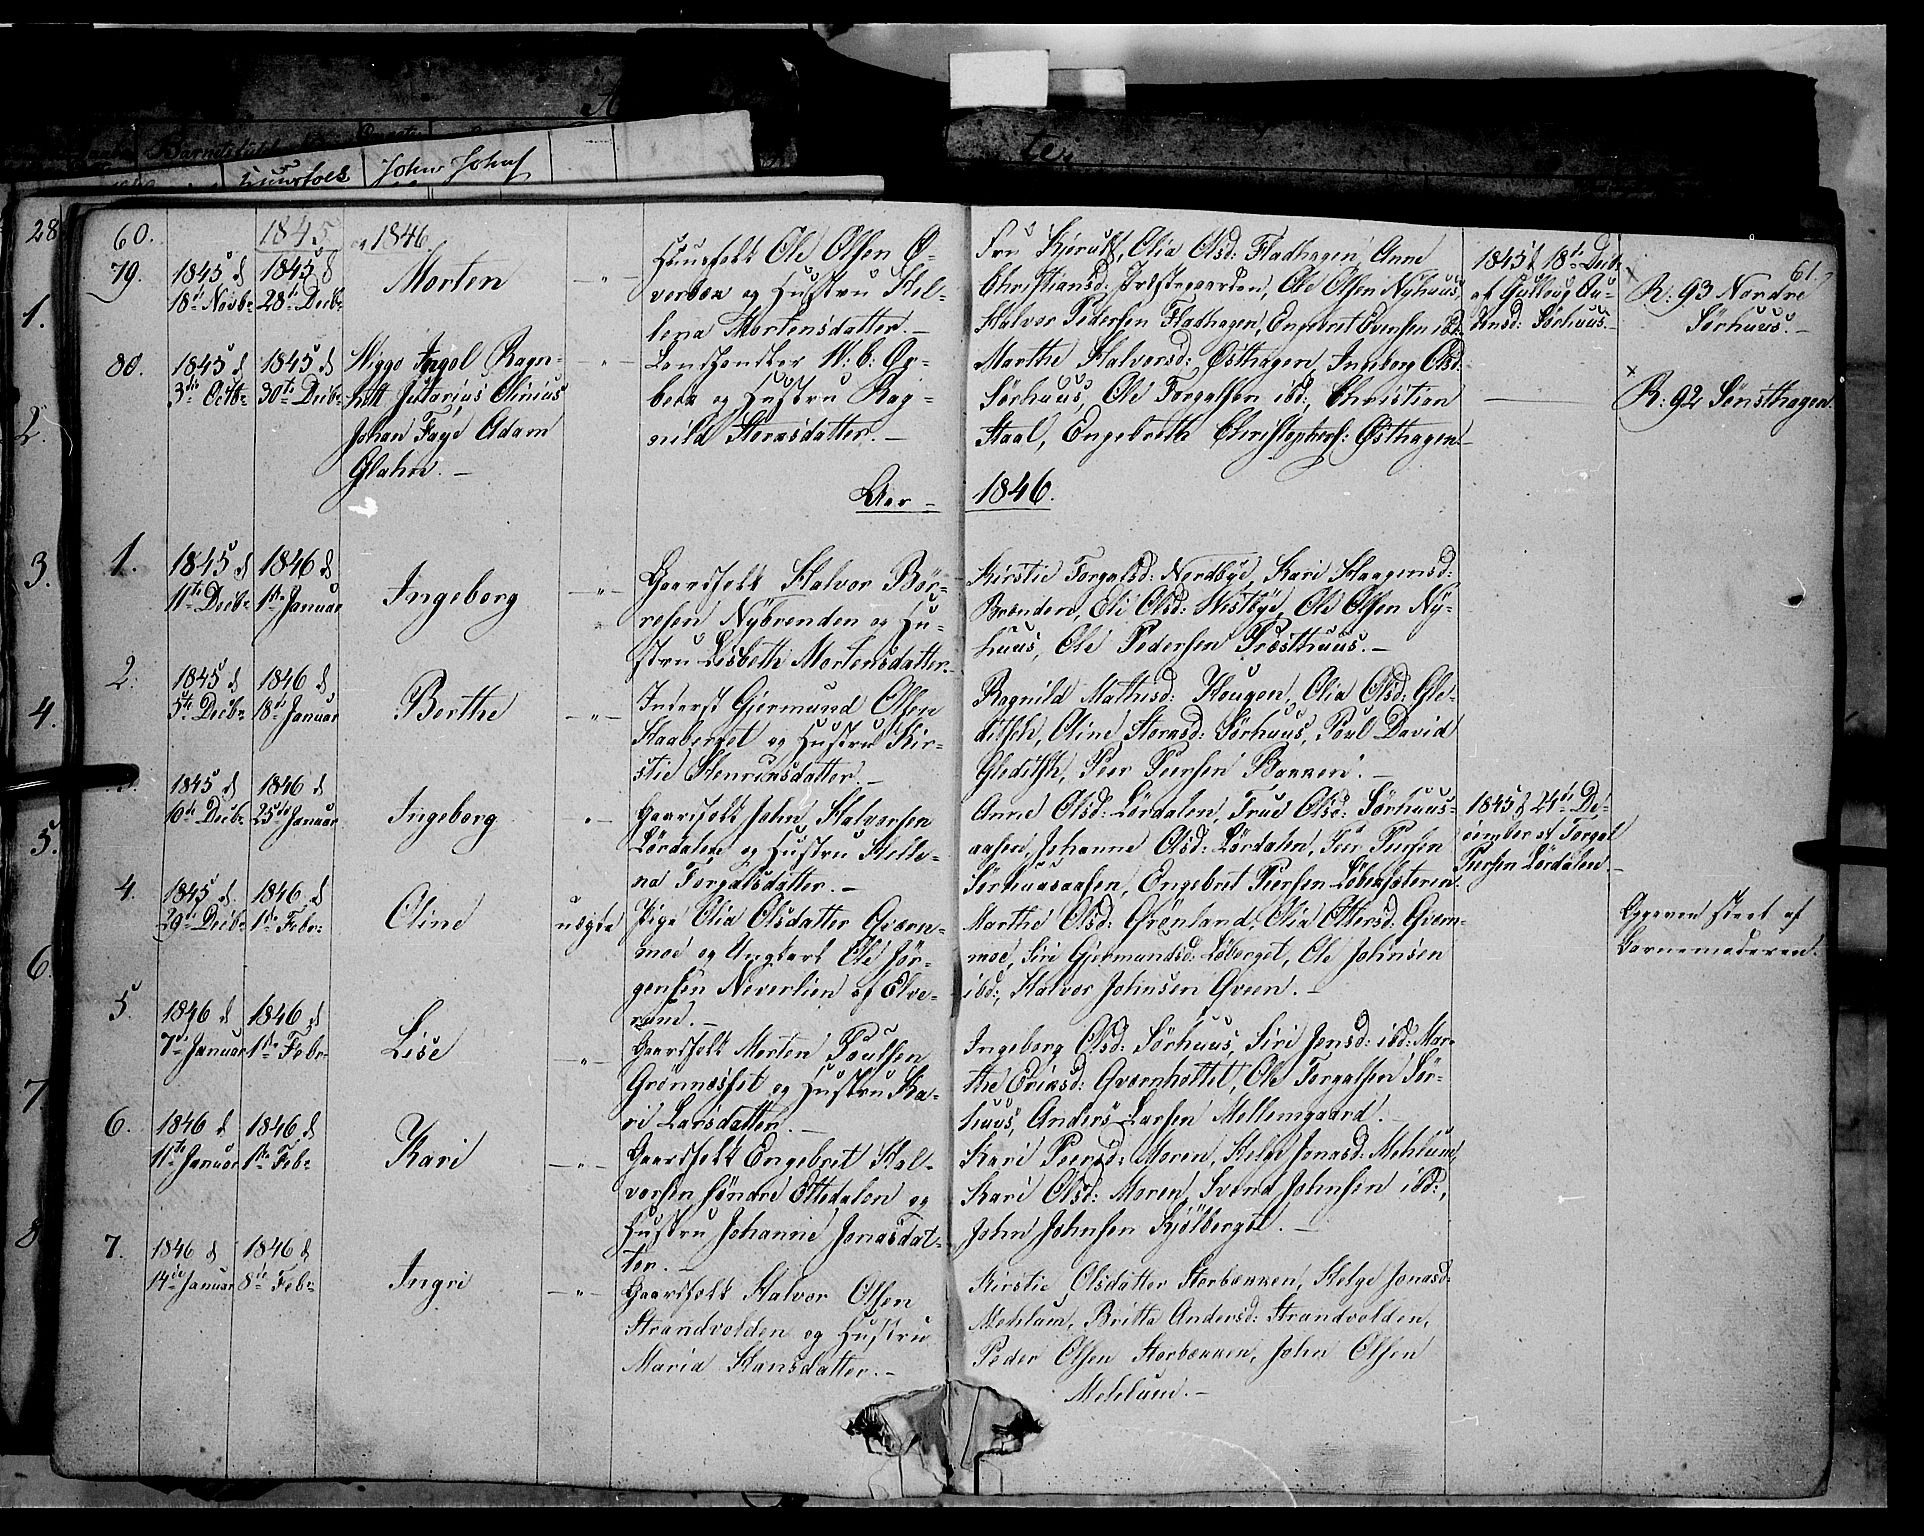 Huusfolk
John Johns
28
60.
1845 og 1846.
61.
79.
1845 d
18de Novbr
1845 d
28de Decbr
Morten
Huusfolk Ole Olsen Ø-
verbæk og Hustru Hel-
lena Mortensdatter.-
Fru Olia Olsd: Fladhagen, Anne
Christiansd: Ole Olsen Nyhuus,
Halvor Pedersen Fladhagen, Engebret Evensen ibd.
1845 d 18de Decbr
af Gulloug Au-
Sörhuus.-
R: 93 Nordre
Sörhuus.-
80.
1845 d
3die Octbr
1845 d
30te Decbr
Wiggo Ingol Ragn-
Jutarius Olinius
Johan Faye Adam
Glahn.-
og Hustru Rag-
nild
Marthe Halvorsd: Østhagen, Inneborg Olsd:
Sörhuus, Ole Torgalsen ibd:, Christian
Staal, Engebreth Christophers: Østhagen.
R: 92 Sönsthagen.
Aar - 1846.
1.
1845 d
11te Decbr
1846 d
1ste Januar
Ingeborg
Gaardfolk Halvor Bör-
resen Nÿbrenden og Hu-
stru Lisbeth Mortensdatter.
Kirstie Torgalsd: Nordbye, Kari Haagensd:
Brænden, Eli Olsd: Westbye, Ole Olsen Ny-
huus, Ole Pedersen Præsthuus.-
2.
1845 d
5te Decbr
1846 d
18de Januar
Berthe
Inderst Gjermund Olsen
Haaberget og Hustru Kir-
stie Henriksdatter.-
Ragnild Mathisd: Haugen, Olia Olsd: Gle-
ditsch, Oline Sörhuus, Poul David
Gleditsh, Peer Peersen Bakken.-
3.
1845 d
10de Decbr
1846 d
25de Januar
Ingeborg
Gaardfolk John Halvorsen
Lördalen og Hustru Helle-
na Torgalsdatter.-
Anne Olsd: Lördalen, Trud Olsd: Sörhuus-
aasen, Johanne Olsd: Lördalen, Peer Peersen
Sörhuusaasen, Engebret Peersen
1845 d 21de De-
cember af Torgal
Peersen Lördalen.
4.
1845 d
29de Decbr
1846 d
1ste Febr:
Oline
uægte
Pige Olia Olsdatter Qværn-
moe og Ungkarl Ole Jör-
gensen Neverlien af Elve-
rum.-
Marthe Olsd: Grönland, Olia Ottersd: Qværn-
moe, Siri Gjermundsd: Löberget, Ole Johnsen
ibd:, Halvor Johnsen Qveen.-
Opgiven strax af
Barnemoderen.
5.
1846 d
7de Januar
1846 d
1ste Febr
Lise
Gaardfolk Morten Poulsen
Grönnæsset og Hustru Ka-
ri Larsdatter.-
Ingeborg Olsd: Sörhuus, Siri Jensd: ibd: Mar-
the Eriksd: Qværnholtet, Ole Torgalsen Sör-
huus, Anders Larsen Mellemgaard.-
6.
1846 d
11te Januar
1846 d
1ste Febr
Kari
Gaardfolk Engebret Hal-
vorsen söndre Ottedalen og
Hustru Johanne Jonasdat-
ter.-
Kari Peersd: Moren, Helge Jonasd: Mehlum,
Kari Olsd: Moren, Svend Johnsen ibd:,
John Johnsen Kjölberget.-
7.
1846 d
14de Januar
1846 d
8de Febr
Ingri
Gaardfolk Halvor Olsen
Strandvolden og Hustru
Maria Hansdatter.-
Kirstie Olsdatter Storbækken, Helge Jonasd:
Mehlum, Britta Andersd: Strandvolden,
Peder Olsen Storbækken, John Olsen
Mehlum.-
1.
2.
3.
4.
5.
6.
7.
8.